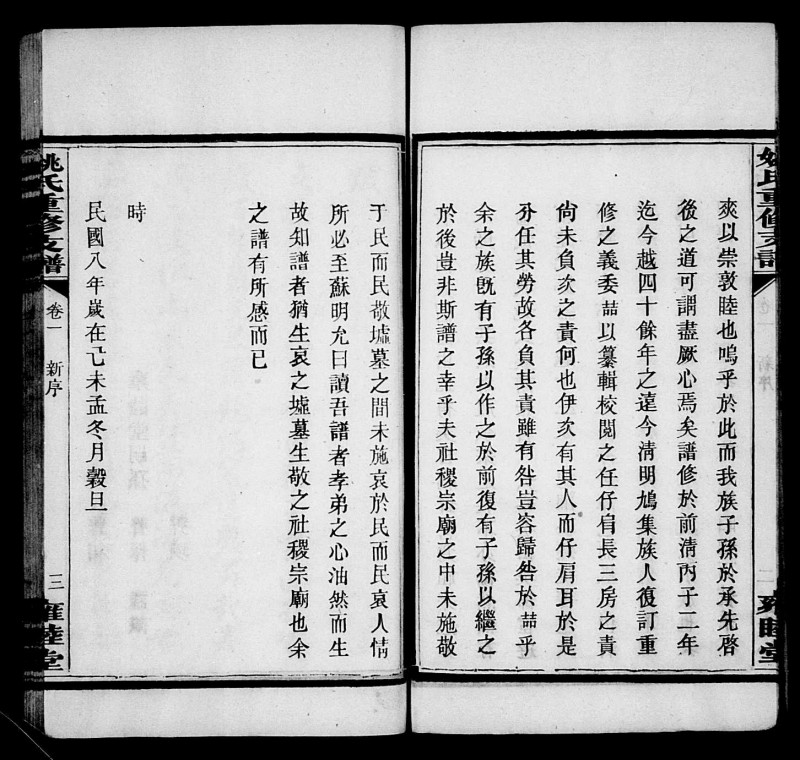 姚氏重修支譜
二
雍睦堂
奭以崇敦睦也嗚乎於此而我族子孫於承先啓
後之道可謂盡厥心焉矣譜修於前清丙子二年
迄今越四十餘年之遠今清明鳩集族人復訂重
修之義委喆以纂輯校閱之任仔肩長三房之責
尙未負次之責何也伊次有其人而仔肩耳於是
分任其勞故各負其責雖有咎豈容歸咎於喆乎
余之族旣有子孫以作之於前復有子孫以繼之
於後豈非斯譜之幸乎夫社稷宗廟之中未施敬
于民而民敬墟墓之間未施哀於民而民哀人情
所必至蘇明允曰讀吾譜者孝弟之心油然而生
故知譜者猶生哀之墟墓生敬之社稷宗廟也余
之譜有所感而已
時
民國八年歲在己未孟冬月穀旦
姚氏重修支譜
卷一
新序
三
雍睦堂